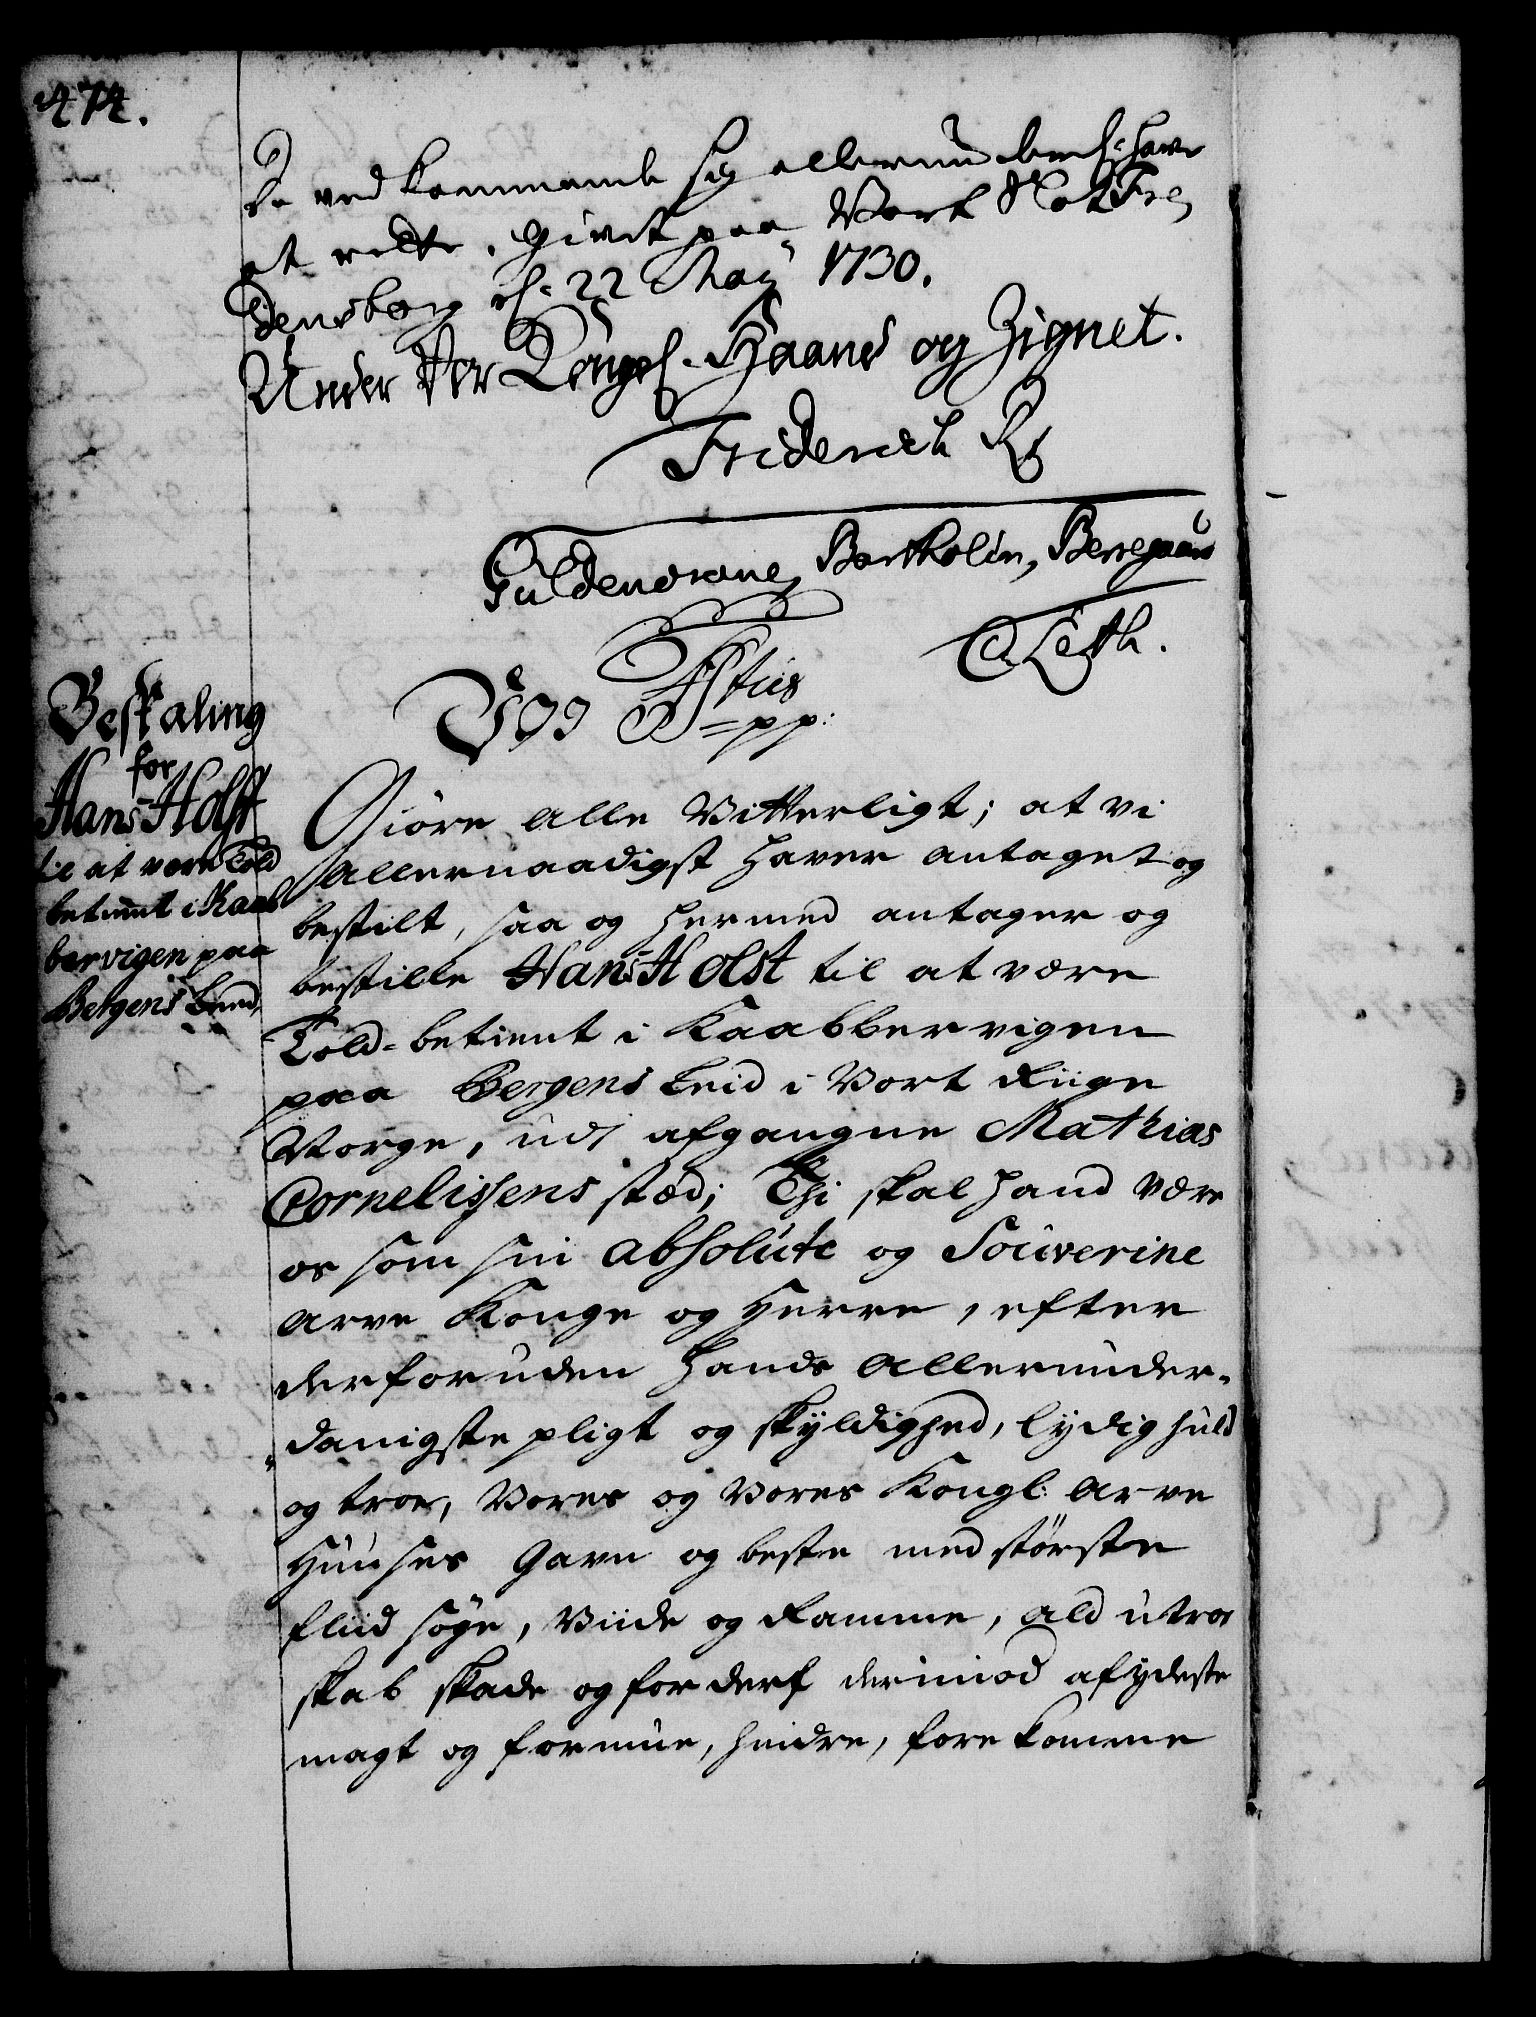 474.
De ved kommende sig allerunderd: have
at rette. Givet paa Vort Slot Fre
densborg d. 22 May 1730.
Under Vor Kongel. Haand og Zignet.
Friderich R
Guldencrone, Bartholin, Benzon
C. Leth.
Bestaling
for
Hans Holst
til at være Told
betient i Kaab
bervigen paa
Bergens Leed,
Vii 4tus
pp:
Giöre alle Vitterligt; at vi
allernaadigst haver antaget og
bestilt, saa og hermed antager og
bestille Hans Holst til at være
Told-betient i Kaabbervigen
paa Bergens Leid i Vort Riige
Norge, udj afgangne Mathias
Cornelissens sted; Thi skal hand være
os som sin absolute og Souverine
arve Konge og Herre, efter
derforuden hands allerunder-
danigste pligt og skyldighed, lydig huld
og troe, Vores og Vores Kongl: arve
Huuses Gavn og beste med störste
fliid söge, Viide og Ramme, ald utroe
skab skade og forderf derimod af ydeste
magt og formue, hindre, forekomme